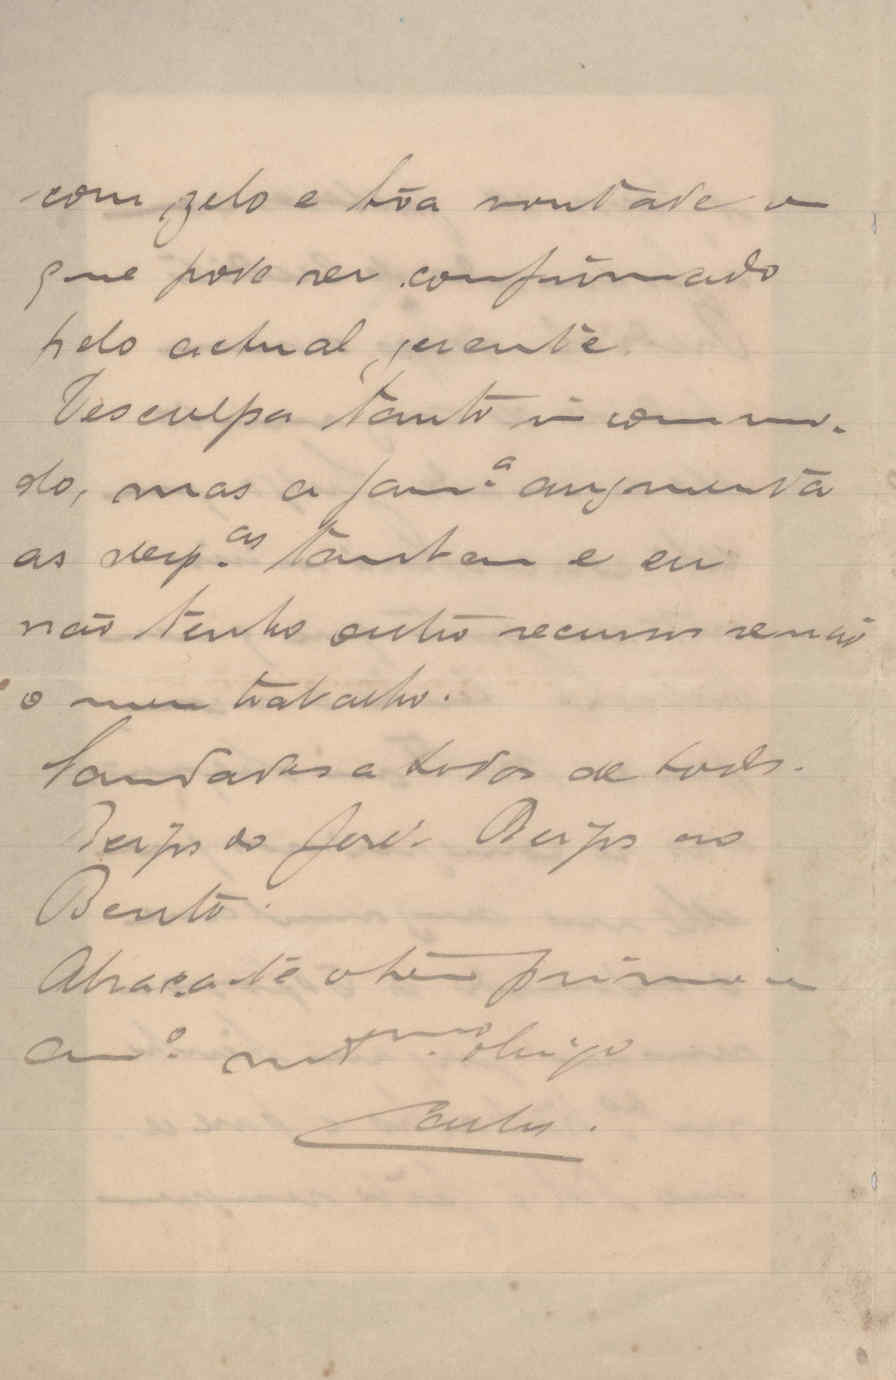 com zelo e bôa vontade o
que pode ser confirmado
pelo actual gerente.
Desculpa tanto incommo-
do, mas a fam.ª augmenta
as desp.as tambem e eu
não tenho outro recurso senão
o meu trabalho.
Saudades a todos de todos.
Beijos do José. Beijos ao
Bento.
Abraça-te o teu primo e
am.º mt.mo obrigo
Carlos.